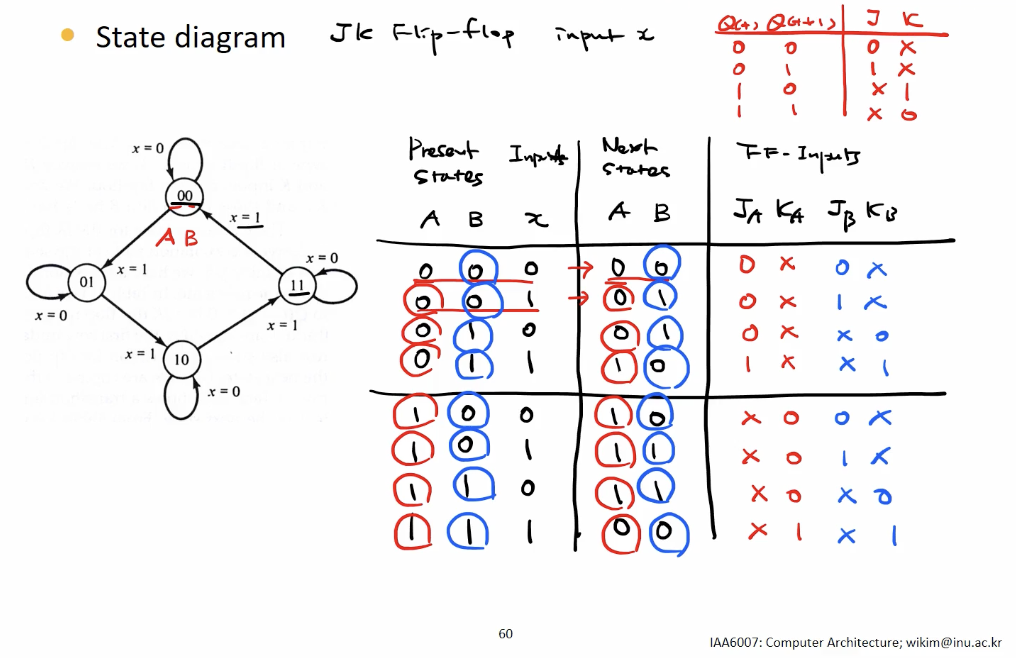 State diagram JK Flip-flop input x
Q(t) Q(t+1) J K
0 0 0 x
0 1 1 x
1 0 x 1
1 1 x 0
x = 0
00
A B
x = 1
x = 1
01
x = 0
x = 0
11
x = 1
x = 1
10
x = 0
Present states Inputs Next states FF-Inputs
A B x A B JA KA JB KB
0 0 0 → 0 0 0 x 0 x
0 0 1 → 0 1 0 x 1 x
0 1 0 0 1 0 x x 0
0 1 1 1 0 1 x x 1
1 0 0 1 0 x 0 0 x
1 0 1 1 1 x 0 1 x
1 1 0 1 1 x 0 x 0
1 1 1 0 0 x 1 x 1
60
IAA6007: Computer Architecture; wikim@inu.ac.kr